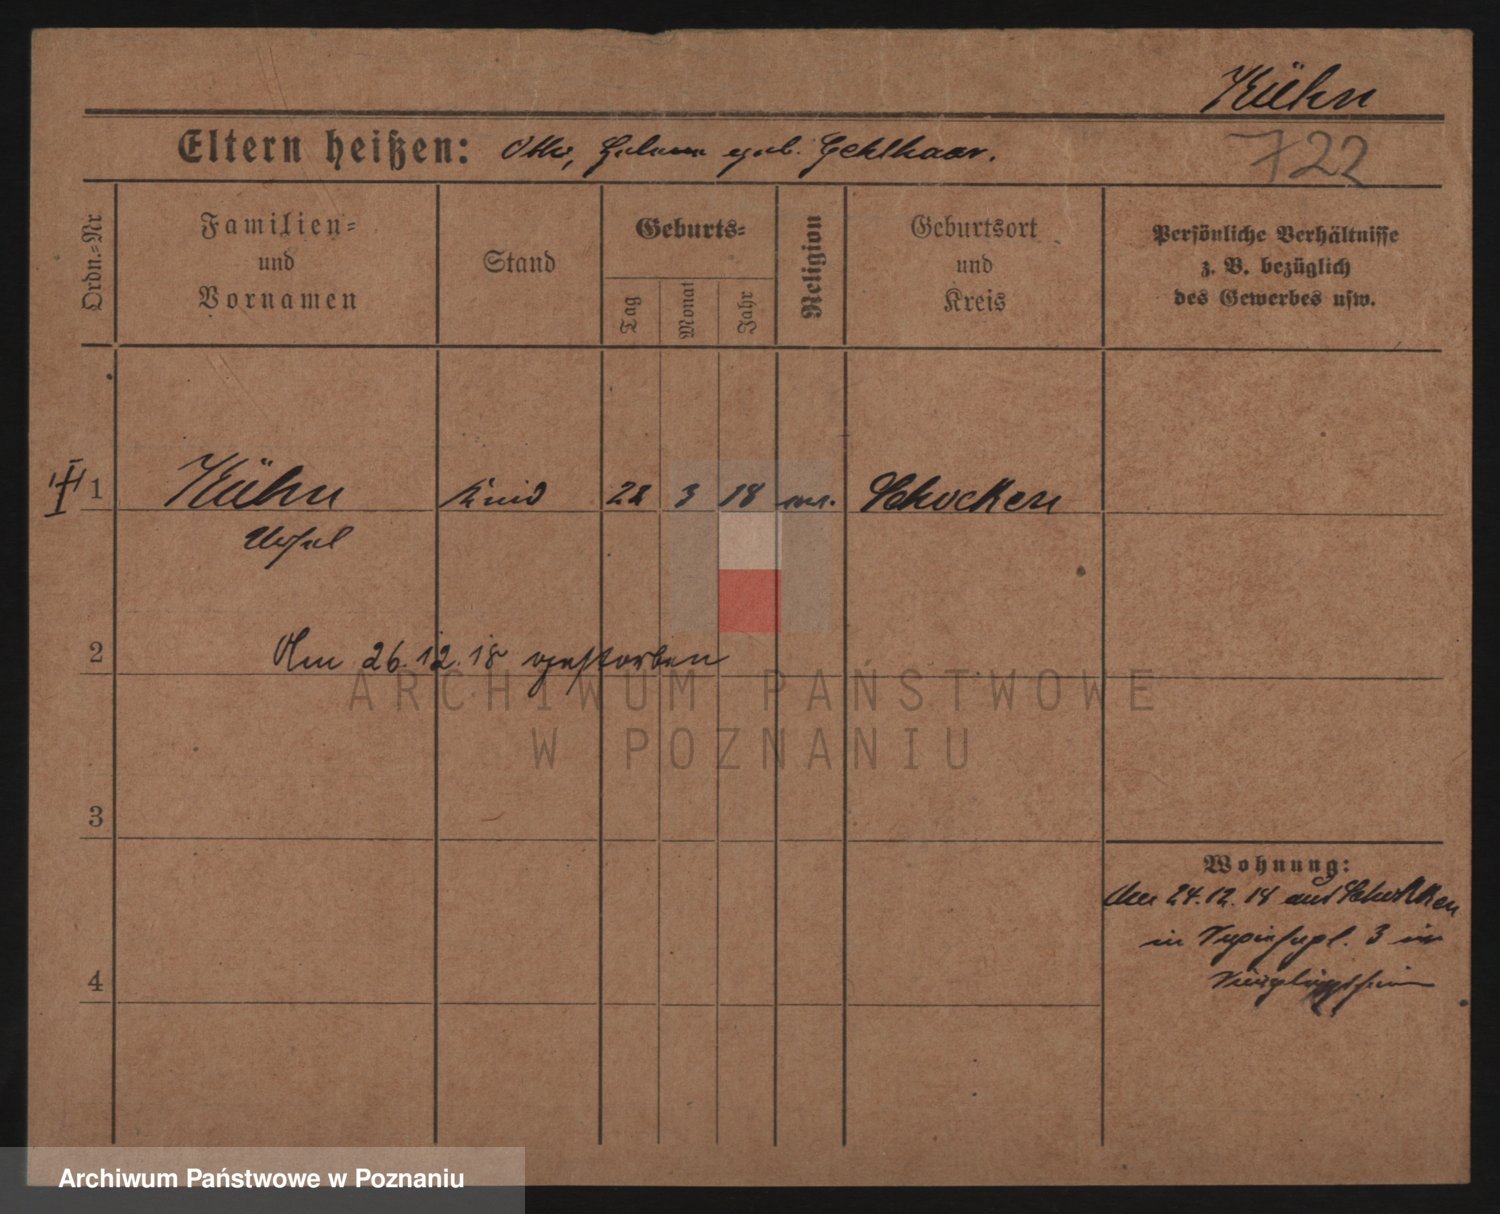 Kühn
Eltern heißen: Otto, Helene geb. Gehlhaar.
722
Ordn.-Nr
Familien-
und
Vornamen
Stand
Geburts-
Tag
Monat
Jahr
Religion
Geburtsort
und
Kreis
Persönliche Verhältnisse
z. B. bezüglich
des Gewerbes usw.
1 Kühn Kind 28 3 18 Schocken
2 Am 26.12.18 gestorben
ARCHIWUM PAŃSTWOWE
W POZNANIU
3
Wohnung:
24.12.18 aus Schokken
in 3 im
4 Säuglingsheim
Archiwum Państwowe w Poznaniu